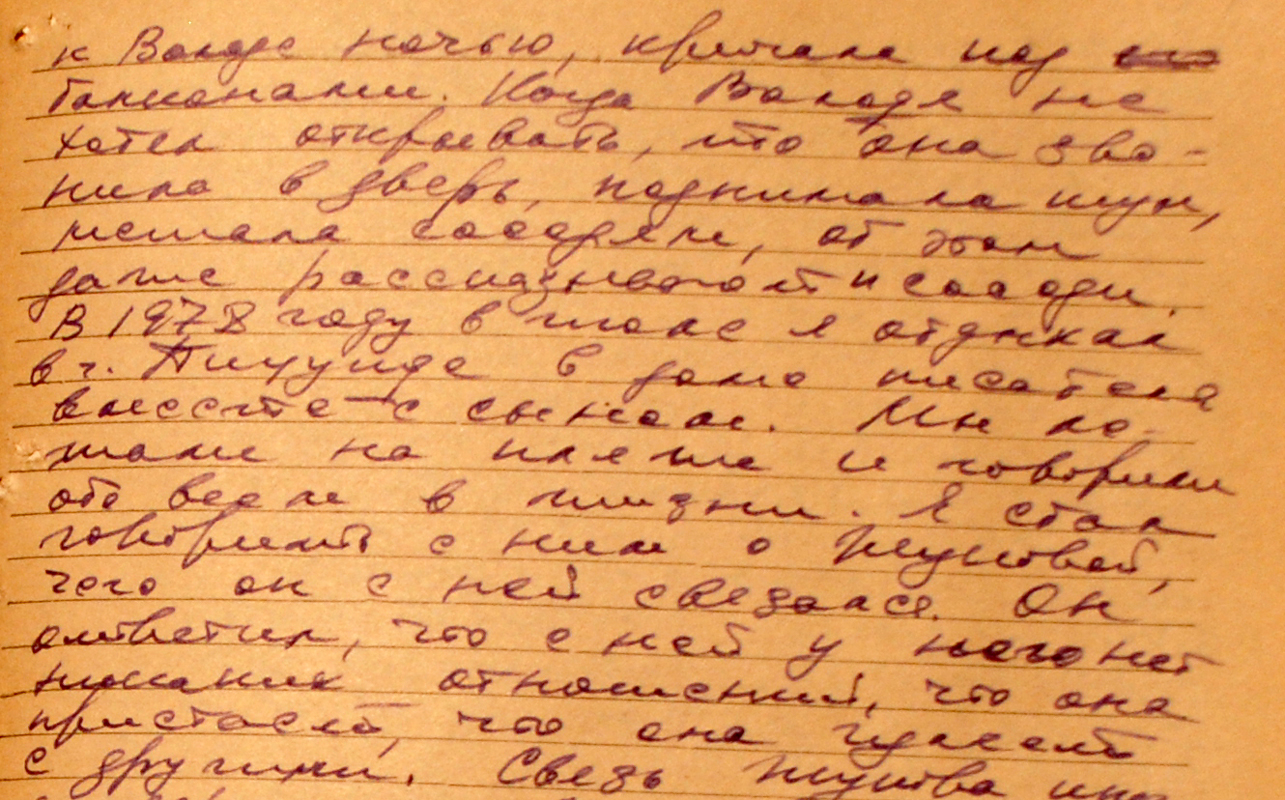 к Володе ночью, кричала под
балконами. Когда Володя не
хотел открывать, что она зво-
нила в дверь, поднимала шум,
мешала соседям, об этом
даже рассказывают и соседи.
В 1978 году в июле я отдыхал
в г. Пицунде в доме писателя
вместе с сыном. Мы ле-
жали на пляже и говорили
обо всем в жизни. Я стал
говорить с ним о Жуковой,
чего он с ней связался. Он
ответил, что с ней у него нет
никаких отношений, что она
пристает, что она гуляет
с другими. Связь